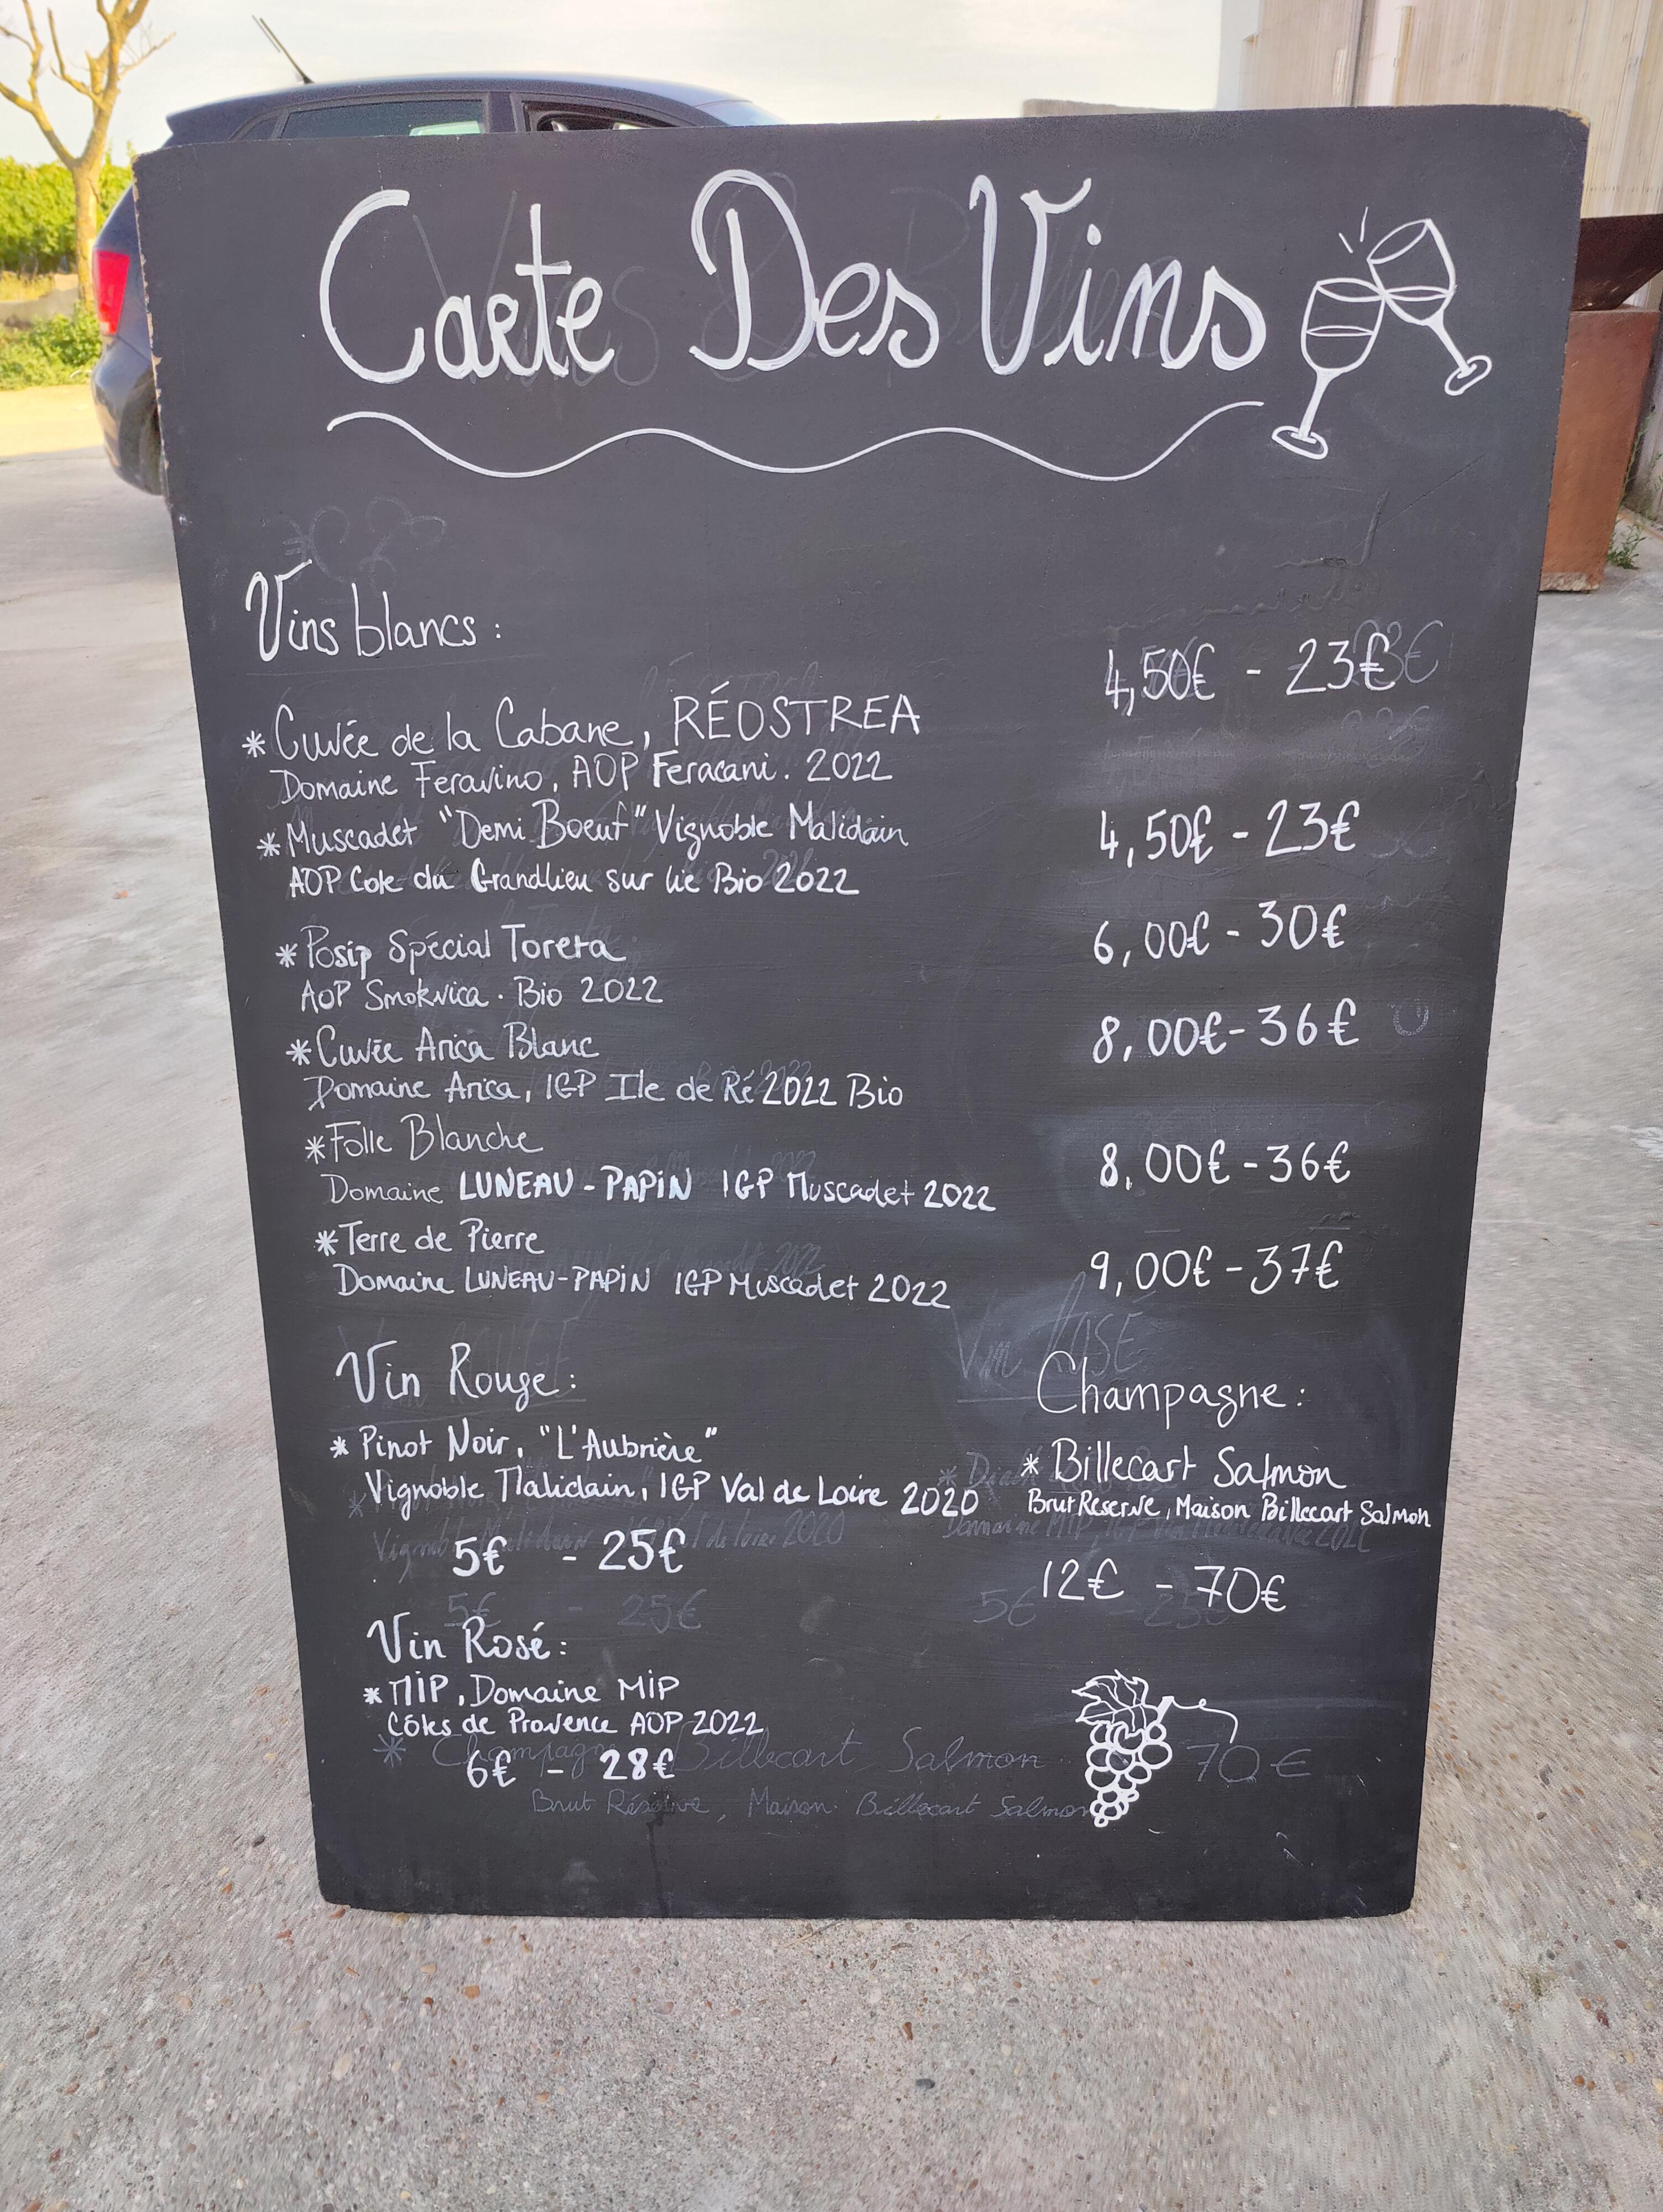 Carte Des Vins
Vins blancs :
4,50€ - 23€
* Cuvée de la Cabane, RÉOSTREA
Domaine Feravino, AOP Feracani. 2022
* Muscadet "Demi Boeuf" Vignoble Malidain
4,50€ - 23€
AOP Cote du Grandlieu sur lie Bio 2022
* Posip Spécial Toreta
6,00€ - 30€
AOP Smokvica . Bio 2022
* Cuvée Arica Blanc
8,00€ - 36€
Domaine Arica, IGP Ile de Ré 2022 Bio
* Folle Blanche
8,00€ - 36€
Domaine LUNEAU - PAPIN IGP Muscadet 2022
* Terre de Pierre
9,00€ - 37€
Domaine LUNEAU-PAPIN IGP Muscadet 2022
Vin Rouge :
* Pinot Noir, "L'Aubrière"
Vignoble Malidain, IGP Val de Loire 2020
5€ - 25€
Champagne :
* Billecart Salmon
Brut Reserve, Maison Billecart Salmon
12€ - 70€
Vin Rosé :
* MIP, Domaine MIP
Côtes de Provence AOP 2022
6€ - 28€
Vin ROSÉ
5€ - 25€
5€ - 25€
* Champagne Billecart Salmon 70€
Brut Réserve, Maison Billecart Salmon